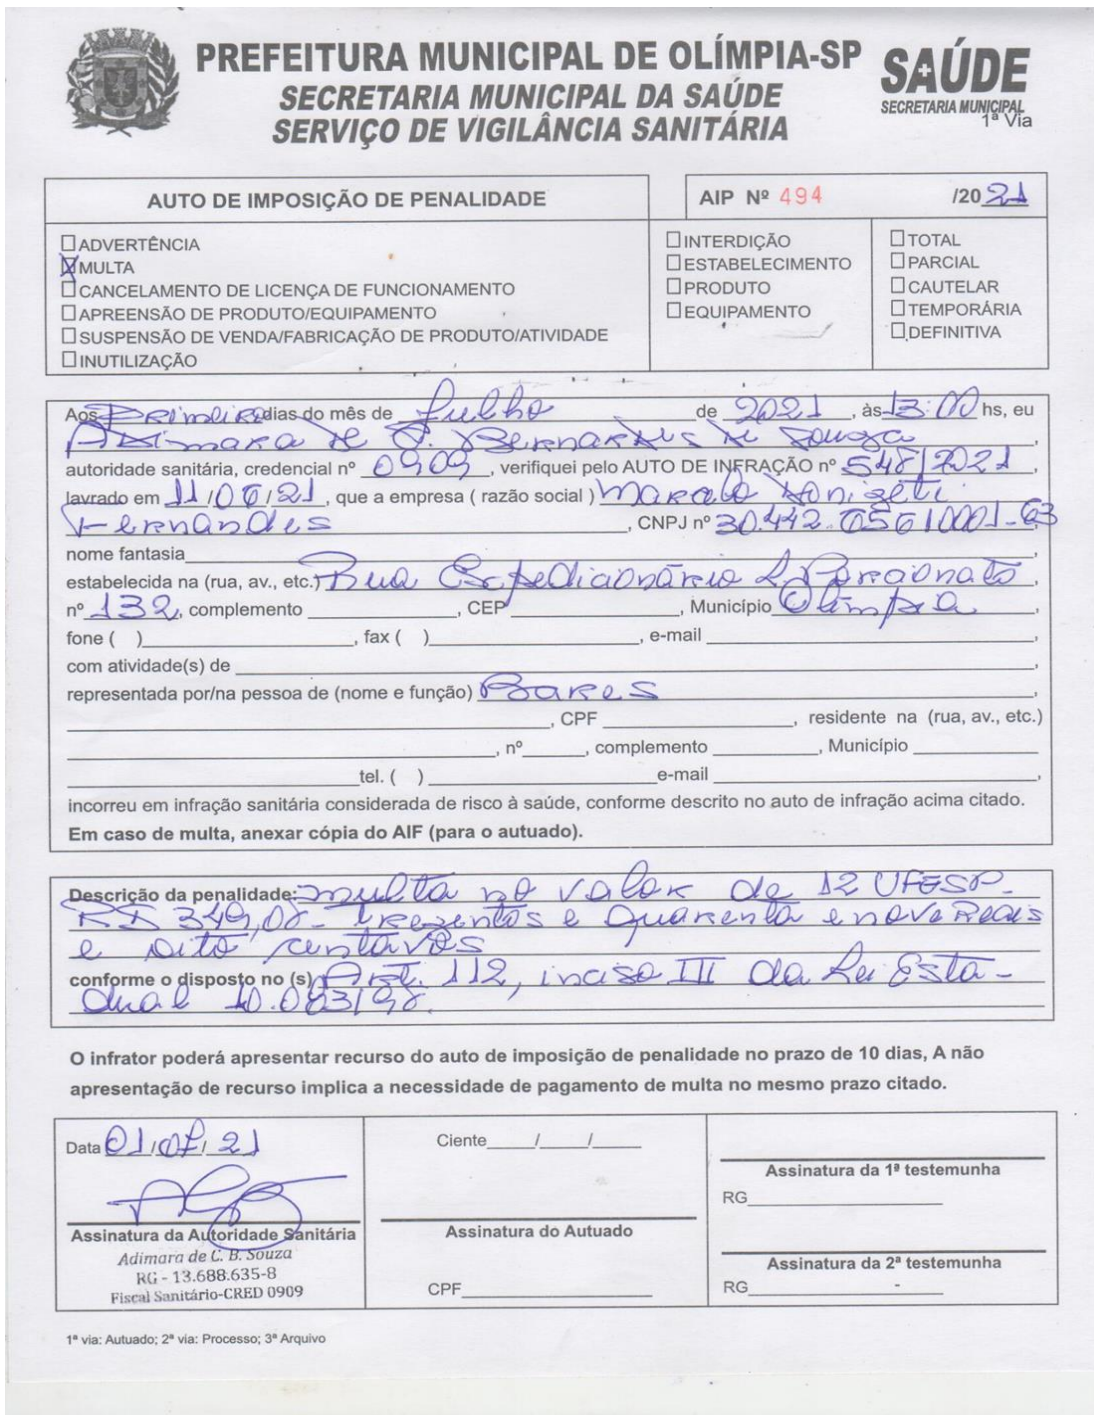 PREFEITURA MUNICIPAL DE OLÍMPIA-SP
SECRETARIA MUNICIPAL DA SAÚDE
SERVIÇO DE VIGILÂNCIA SANITÁRIA
SAÚDE
SECRETARIA MUNICIPAL
1ª Via
AUTO DE IMPOSIÇÃO DE PENALIDADE
AIP Nº 494 /2021
ADVERTÊNCIA
MULTA
CANCELAMENTO DE LICENÇA DE FUNCIONAMENTO
APREENSÃO DE PRODUTO/EQUIPAMENTO
SUSPENSÃO DE VENDA/FABRICAÇÃO DE PRODUTO/ATIVIDADE
INUTILIZAÇÃO
INTERDIÇÃO
ESTABELECIMENTO
PRODUTO
EQUIPAMENTO
TOTAL
PARCIAL
CAUTELAR
TEMPORÁRIA
DEFINITIVA
Aos Primeiro dias do mês de Julho de 2021, às 13:00 hs, eu
Adimara de C. Bernardes de Souza,
autoridade sanitária, credencial nº 0909, verifiquei pelo AUTO DE INFRAÇÃO nº 548/2021,
lavrado em 11/06/21, que a empresa ( razão social ) Marcelo Donizeti
Fernandes, CNPJ nº 30.442.656/0001-63,
nome fantasia,
estabelecida na (rua, av., etc.) Rua Expedicionário L. Porcionato,
nº 132, complemento , CEP , Município Olímpia,
fone ( ) , fax ( ) , e-mail ,
com atividade(s) de ,
representada por/na pessoa de (nome e função) Bares,
, CPF , residente na (rua, av., etc.)
, nº , complemento , Município
tel. ( ) e-mail ,
incorreu em infração sanitária considerada de risco à saúde, conforme descrito no auto de infração acima citado.
Em caso de multa, anexar cópia do AIF (para o autuado).
Descrição da penalidade: multa no valor de 12 UFESP-
R$ 349,08 - trezentos e quarenta e nove Reais
e oito centavos
conforme o disposto no (s) Art. 112, inciso III da Lei Esta-
dual 10.083/98.
O infrator poderá apresentar recurso do auto de imposição de penalidade no prazo de 10 dias, A não
apresentação de recurso implica a necessidade de pagamento de multa no mesmo prazo citado.
Data 01/07/21
Assinatura da Autoridade Sanitária
Adimara de C. B. Souza
RG - 13.688.635-8
Fiscal Sanitário-CRED 0909
Ciente / /
Assinatura do Autuado
CPF
Assinatura da 1ª testemunha
RG
Assinatura da 2ª testemunha
RG
1ª via: Autuado; 2ª via: Processo; 3ª Arquivo